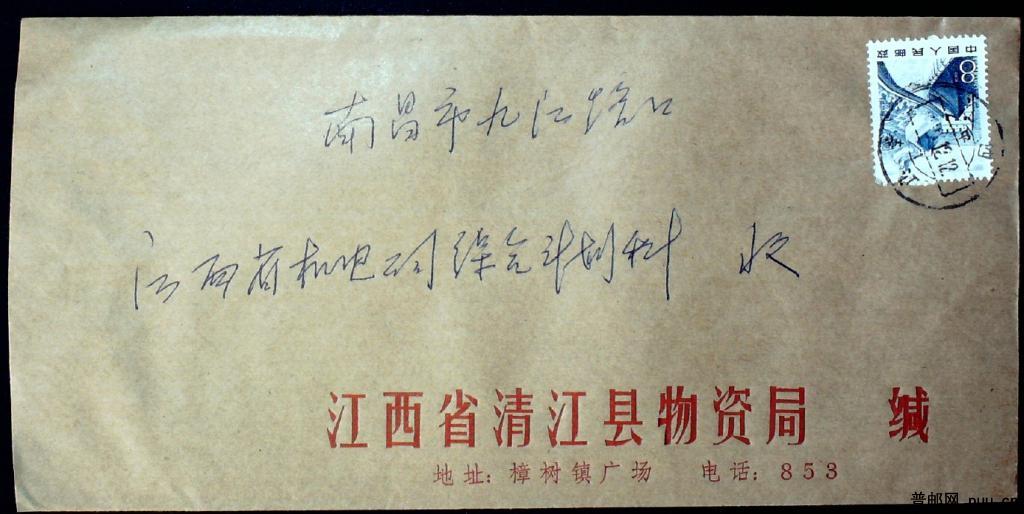 南昌市九江路口
江西省机电公司综合计划科 收
中国人民邮政
8
江西省清江县物资局 缄
地址:樟树镇广场 电话:853
普邮网 puu.cn